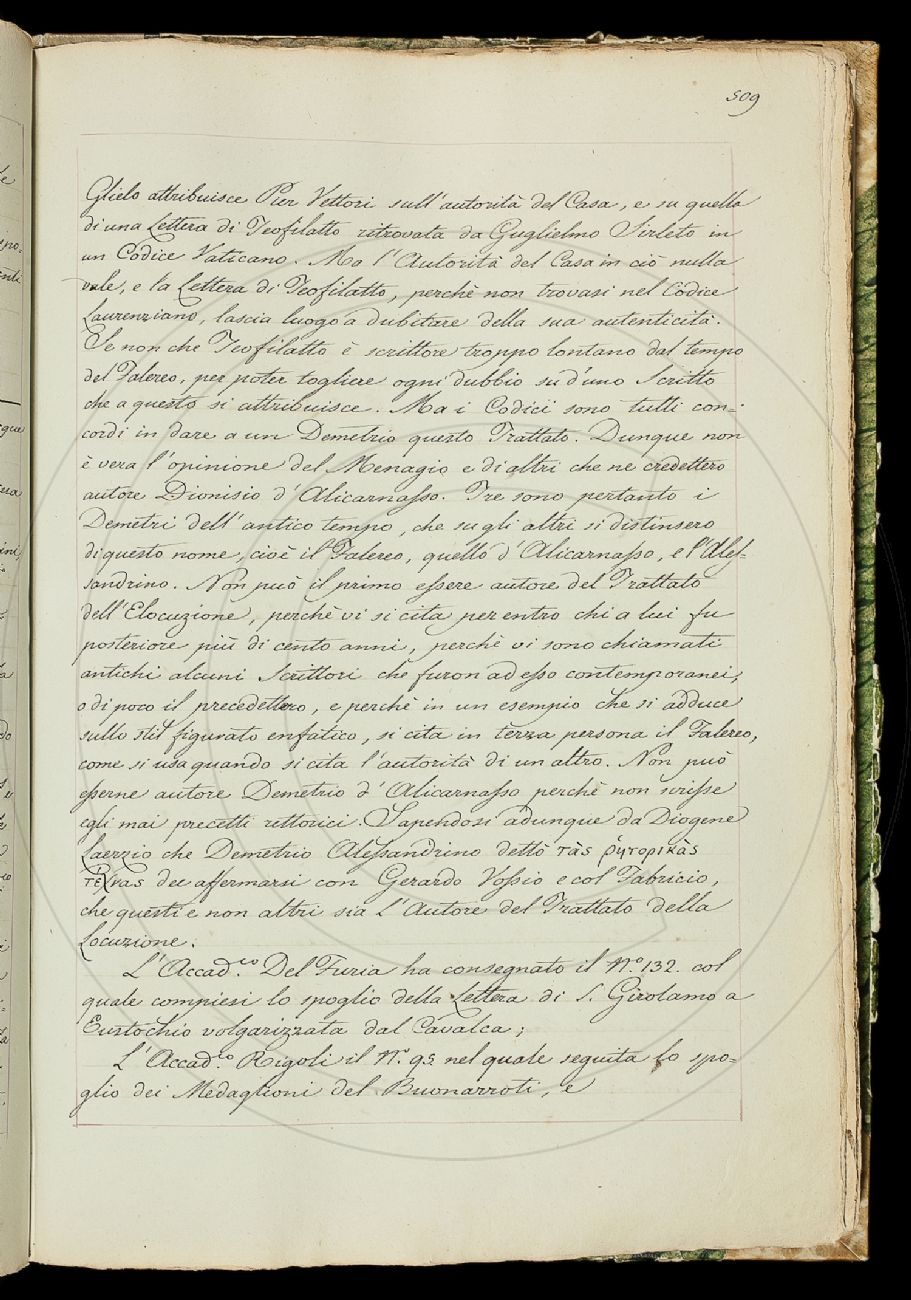 509
Glielo attribuisce Pier Vettori sull'autorità del Casa, e su quella
di una Lettera di Teofilatto ritrovata da Guglielmo Sirleto in
un Codice Vaticano. Ma l'Autorità del Casa in ciò nulla
vale, e la Lettera di Teofilatto, perchè non trovasi nel Codice
Laurenziano, lascia luogo a dubitare della sua autenticità.
Se non che Teofilatto è scrittore troppo lontano dal tempo
del Falereo, per poter togliere ogni dubbio su d'uno Scritto
che a questo si attribuisce. Ma i Codici sono tutti con-
cordi in dare a un Demetrio questo Trattato. Dunque non
è vera l'opinione del Menagio e di altri che ne credettero
autore Dionisio d'Alicarnasso. Tre sono pertanto i
Demetri dell'antico tempo, che sugli altri si distinsero
di questo nome, cioè il Falereo, quello d'Alicarnasso, e l'Ales-
sandrino. Non può il primo essere autore del Trattato
dell'Elocuzione, perchè vi si cita per entro chi a lui fu
posteriore più di cento anni, perchè vi sono chiamati
antichi alcuni Scrittori che furon ad esso contemporanei,
o di poco il precedettero, e perchè in un esempio che si adduce
sullo stil figurato enfatico, si cita in terza persona il Falereo,
come si usa quando si cita l'autorità di un altro. Non può
esserne autore Demetrio d'Alicarnasso perchè non scrisse
egli mai precetti rettorici. Sapendosi adunque da Diogene
Laerzio che Demetrio Alessandrino dettò τὰς ῥητορικὰς
τέχνας dee affermarsi con Gerardo Vossio e col Fabricio,
che questi e non altri sia l'Autore del Trattato della
Locuzione.
L'Accad.co Del Furia ha consegnato il N.o 132. col
quale compiesi lo spoglio della Lettera di S. Girolamo a
Eustochio volgarizzata dal Cavalca;
L'Accad.co Rigoli il N.o 95. nel quale seguita lo spo-
glio dei Medaglioni del Buonarroti, e